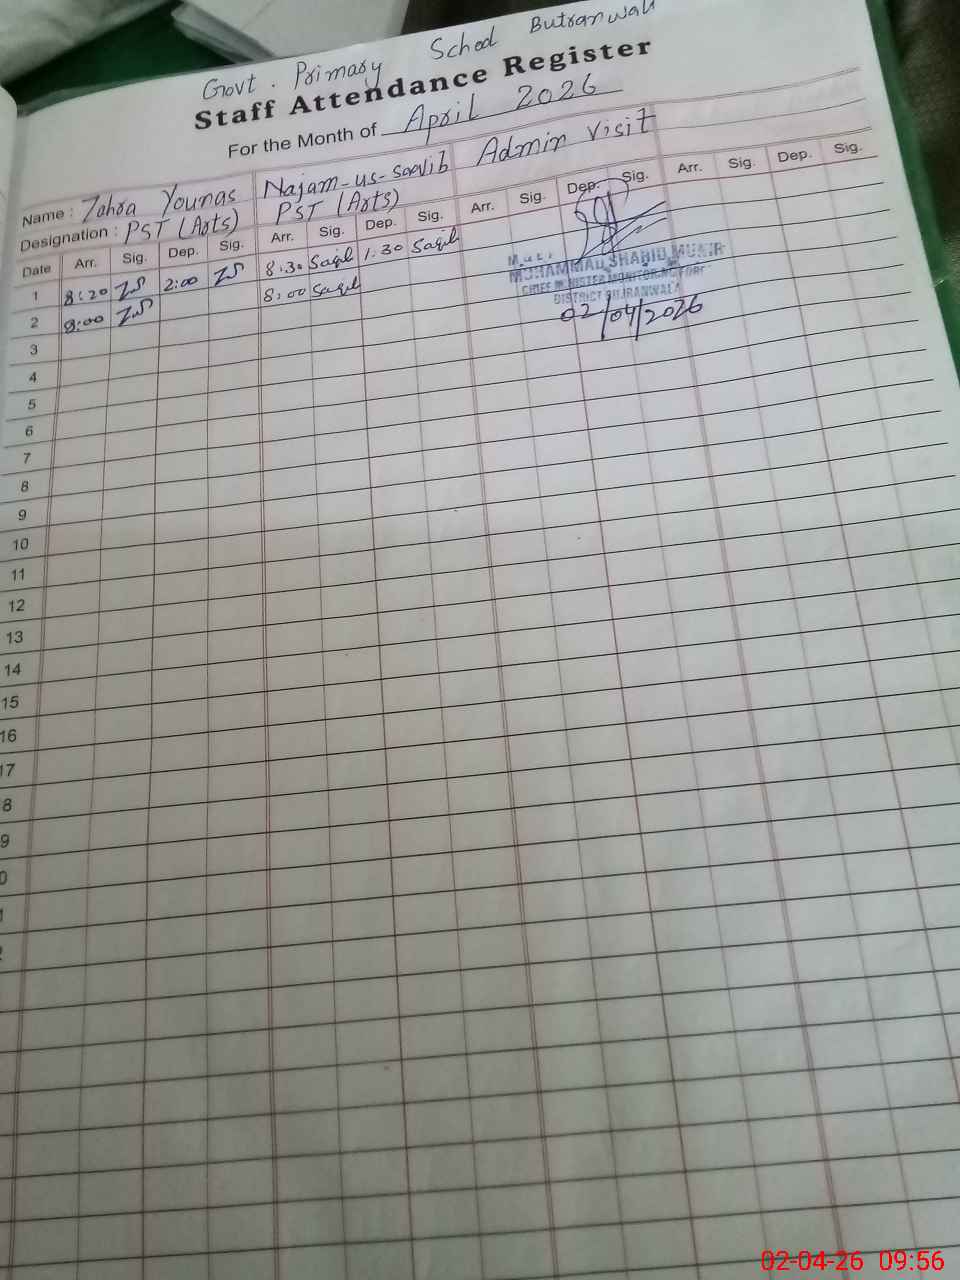 Govt. Primary School Butranwali
Staff Attendance Register
For the Month of April 2026
Name : Zahra Younas Najam-us-saqib Admin visit
Designation : PST (Arts) PST (Arts)
Date Arr. Sig. Dep. Sig. Arr. Sig. Dep. Sig. Arr. Sig. Dep. Sig. Arr. Sig. Dep. Sig.
1 8:20 ZS 2:00 ZS 8:30 Saqib 1:30 Saqib
2 8:00 ZS 8:00 Saqib
MUHAMMAD SHAHID MUNIR
CHIEF MINISTER MONITORING FORCE
DISTRICT GUJRANWALA
02/04/2026
3
4
5
6
7
8
9
10
11
12
13
14
15
16
17
8
9
0
02-04-26 09:56